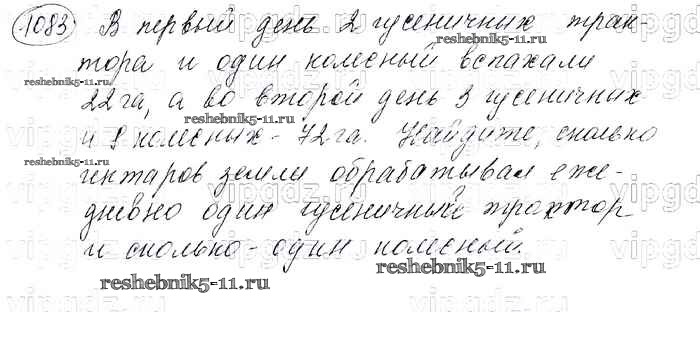 1083 В первый день 2 гусеничных трак-
тора и один колесный вспахали
22 га, а во второй день 3 гусеничных
и 8 колесных - 72 га. Найдите, сколько
гектаров земли обрабатывал еже-
дневно один гусеничный трактор
и сколько - один колесный.
reshebnik5-11.ru
reshebnik5-11.ru
reshebnik5-11.ru
reshebnik5-11.ru
reshebnik5-11.ru
reshebnik5-11.ru